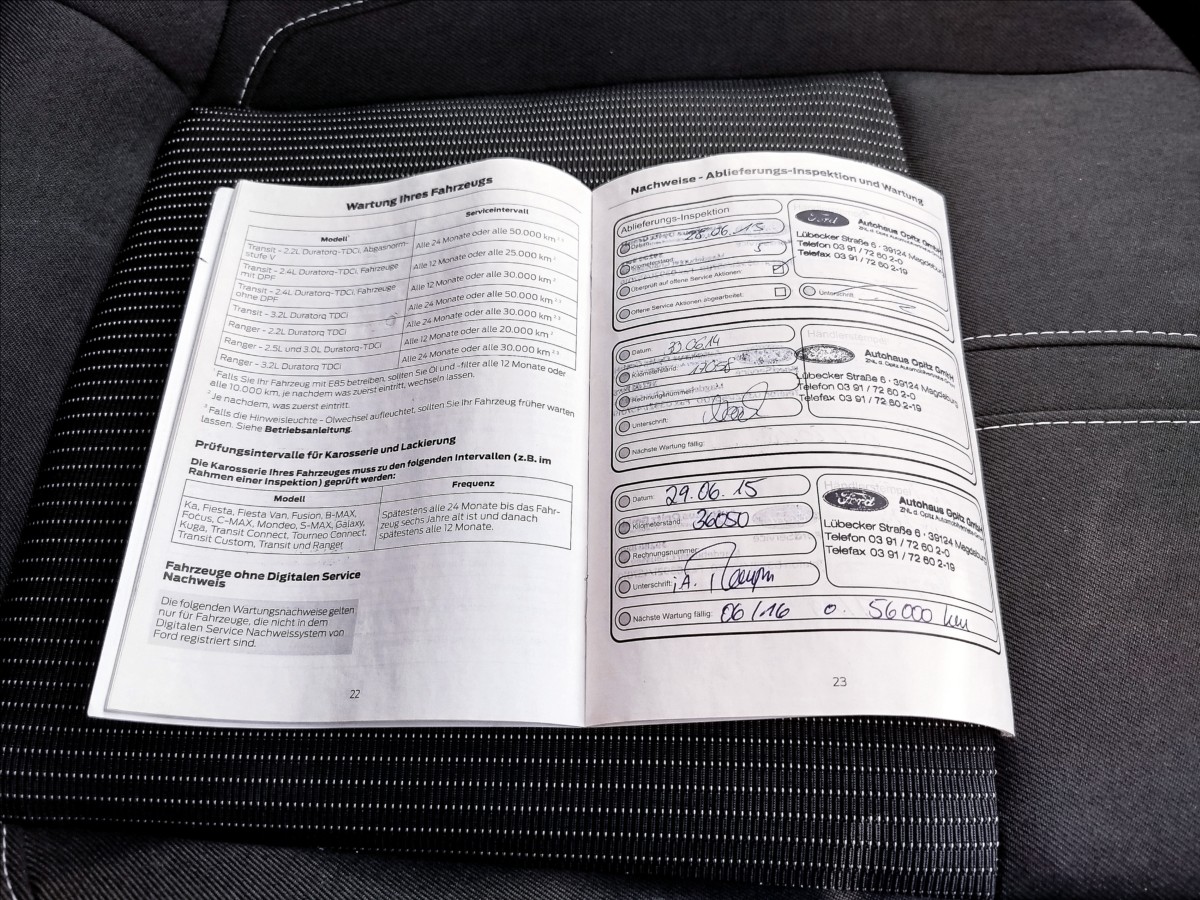 Wartung Ihres Fahrzeugs
Modell¹
Serviceintervall
Transit - 2.2L Duratorq-TDCi, Abgasnorm-
stufe V
Alle 24 Monate oder alle 50.000 km ² ³
Transit - 2.4L Duratorq-TDCi, Fahrzeuge
mit DPF
Alle 12 Monate oder alle 25.000 km ²
Transit - 2.4L Duratorq-TDCi, Fahrzeuge
ohne DPF
Alle 12 Monate oder alle 30.000 km ²
Transit - 3.2L Duratorq TDCi
Alle 24 Monate oder alle 50.000 km ² ³
Ranger - 2.2L Duratorq-TDCi
Alle 24 Monate oder alle 30.000 km ² ³
Ranger - 2.5L und 3.0L Duratorq-TDCi
Alle 12 Monate oder alle 20.000 km ²
Ranger - 3.2L Duratorq TDCi
Alle 24 Monate oder alle 30.000 km ² ³
¹ Falls Sie Ihr Fahrzeug mit E85 betreiben, sollten Sie Öl und -filter alle 12 Monate oder
alle 10.000 km, je nachdem was zuerst eintritt, wechseln lassen.
² Je nachdem, was zuerst eintritt.
³ Falls die Hinweisleuchte - Ölwechsel aufleuchtet, sollten Sie Ihr Fahrzeug früher warten
lassen. Siehe Betriebsanleitung.
Prüfungsintervalle für Karosserie und Lackierung
Die Karosserie Ihres Fahrzeuges muss zu den folgenden Intervallen (z.B. im
Rahmen einer Inspektion) geprüft werden:
Modell
Frequenz
Ka, Fiesta, Fiesta Van, Fusion, B-MAX,
Focus, C-MAX, Mondeo, S-MAX, Galaxy,
Kuga, Transit Connect, Tourneo Connect,
Transit Custom, Transit und Ranger
Spätestens alle 24 Monate bis das Fahr-
zeug sechs Jahre alt ist und danach
spätestens alle 12 Monate.
Fahrzeuge ohne Digitalen Service
Nachweis
Die folgenden Wartungsnachweise gelten
nur für Fahrzeuge, die nicht in dem
Digitalen Service Nachweissystem von
Ford registriert sind.
22
Nachweise - Ablieferungs-Inspektion und Wartung
Ablieferungs-Inspektion
Datum:
.06.13
Kilometerstand:
5
Überprüft auf offene Service Aktionen:
Offene Service Aktionen abgearbeitet:
Unterschrift:
Ford
Autohaus Opitz GmbH
Lübecker Straße 6 · 39124 Magdeburg
Telefon 03 91 / 72 60 2-0
Telefax 03 91 / 72 60 2-19
Datum:
.06.14
Kilometerstand:
Rechnungsnummer:
Unterschrift:
Nächste Wartung fällig:
Ford
Autohaus Opitz GmbH
Lübecker Straße 6 · 39124 Magdeburg
Telefon 03 91 / 72 60 2-0
Telefax 03 91 / 72 60 2-19
Datum:
29.06.15
Kilometerstand:
36050
Rechnungsnummer:
Unterschrift:
i.A.
Nächste Wartung fällig:
06/16 o. 56000 km
Ford
Autohaus Opitz GmbH
Lübecker Straße 6 · 39124 Magdeburg
Telefon 03 91 / 72 60 2-0
Telefax 03 91 / 72 60 2-19
23